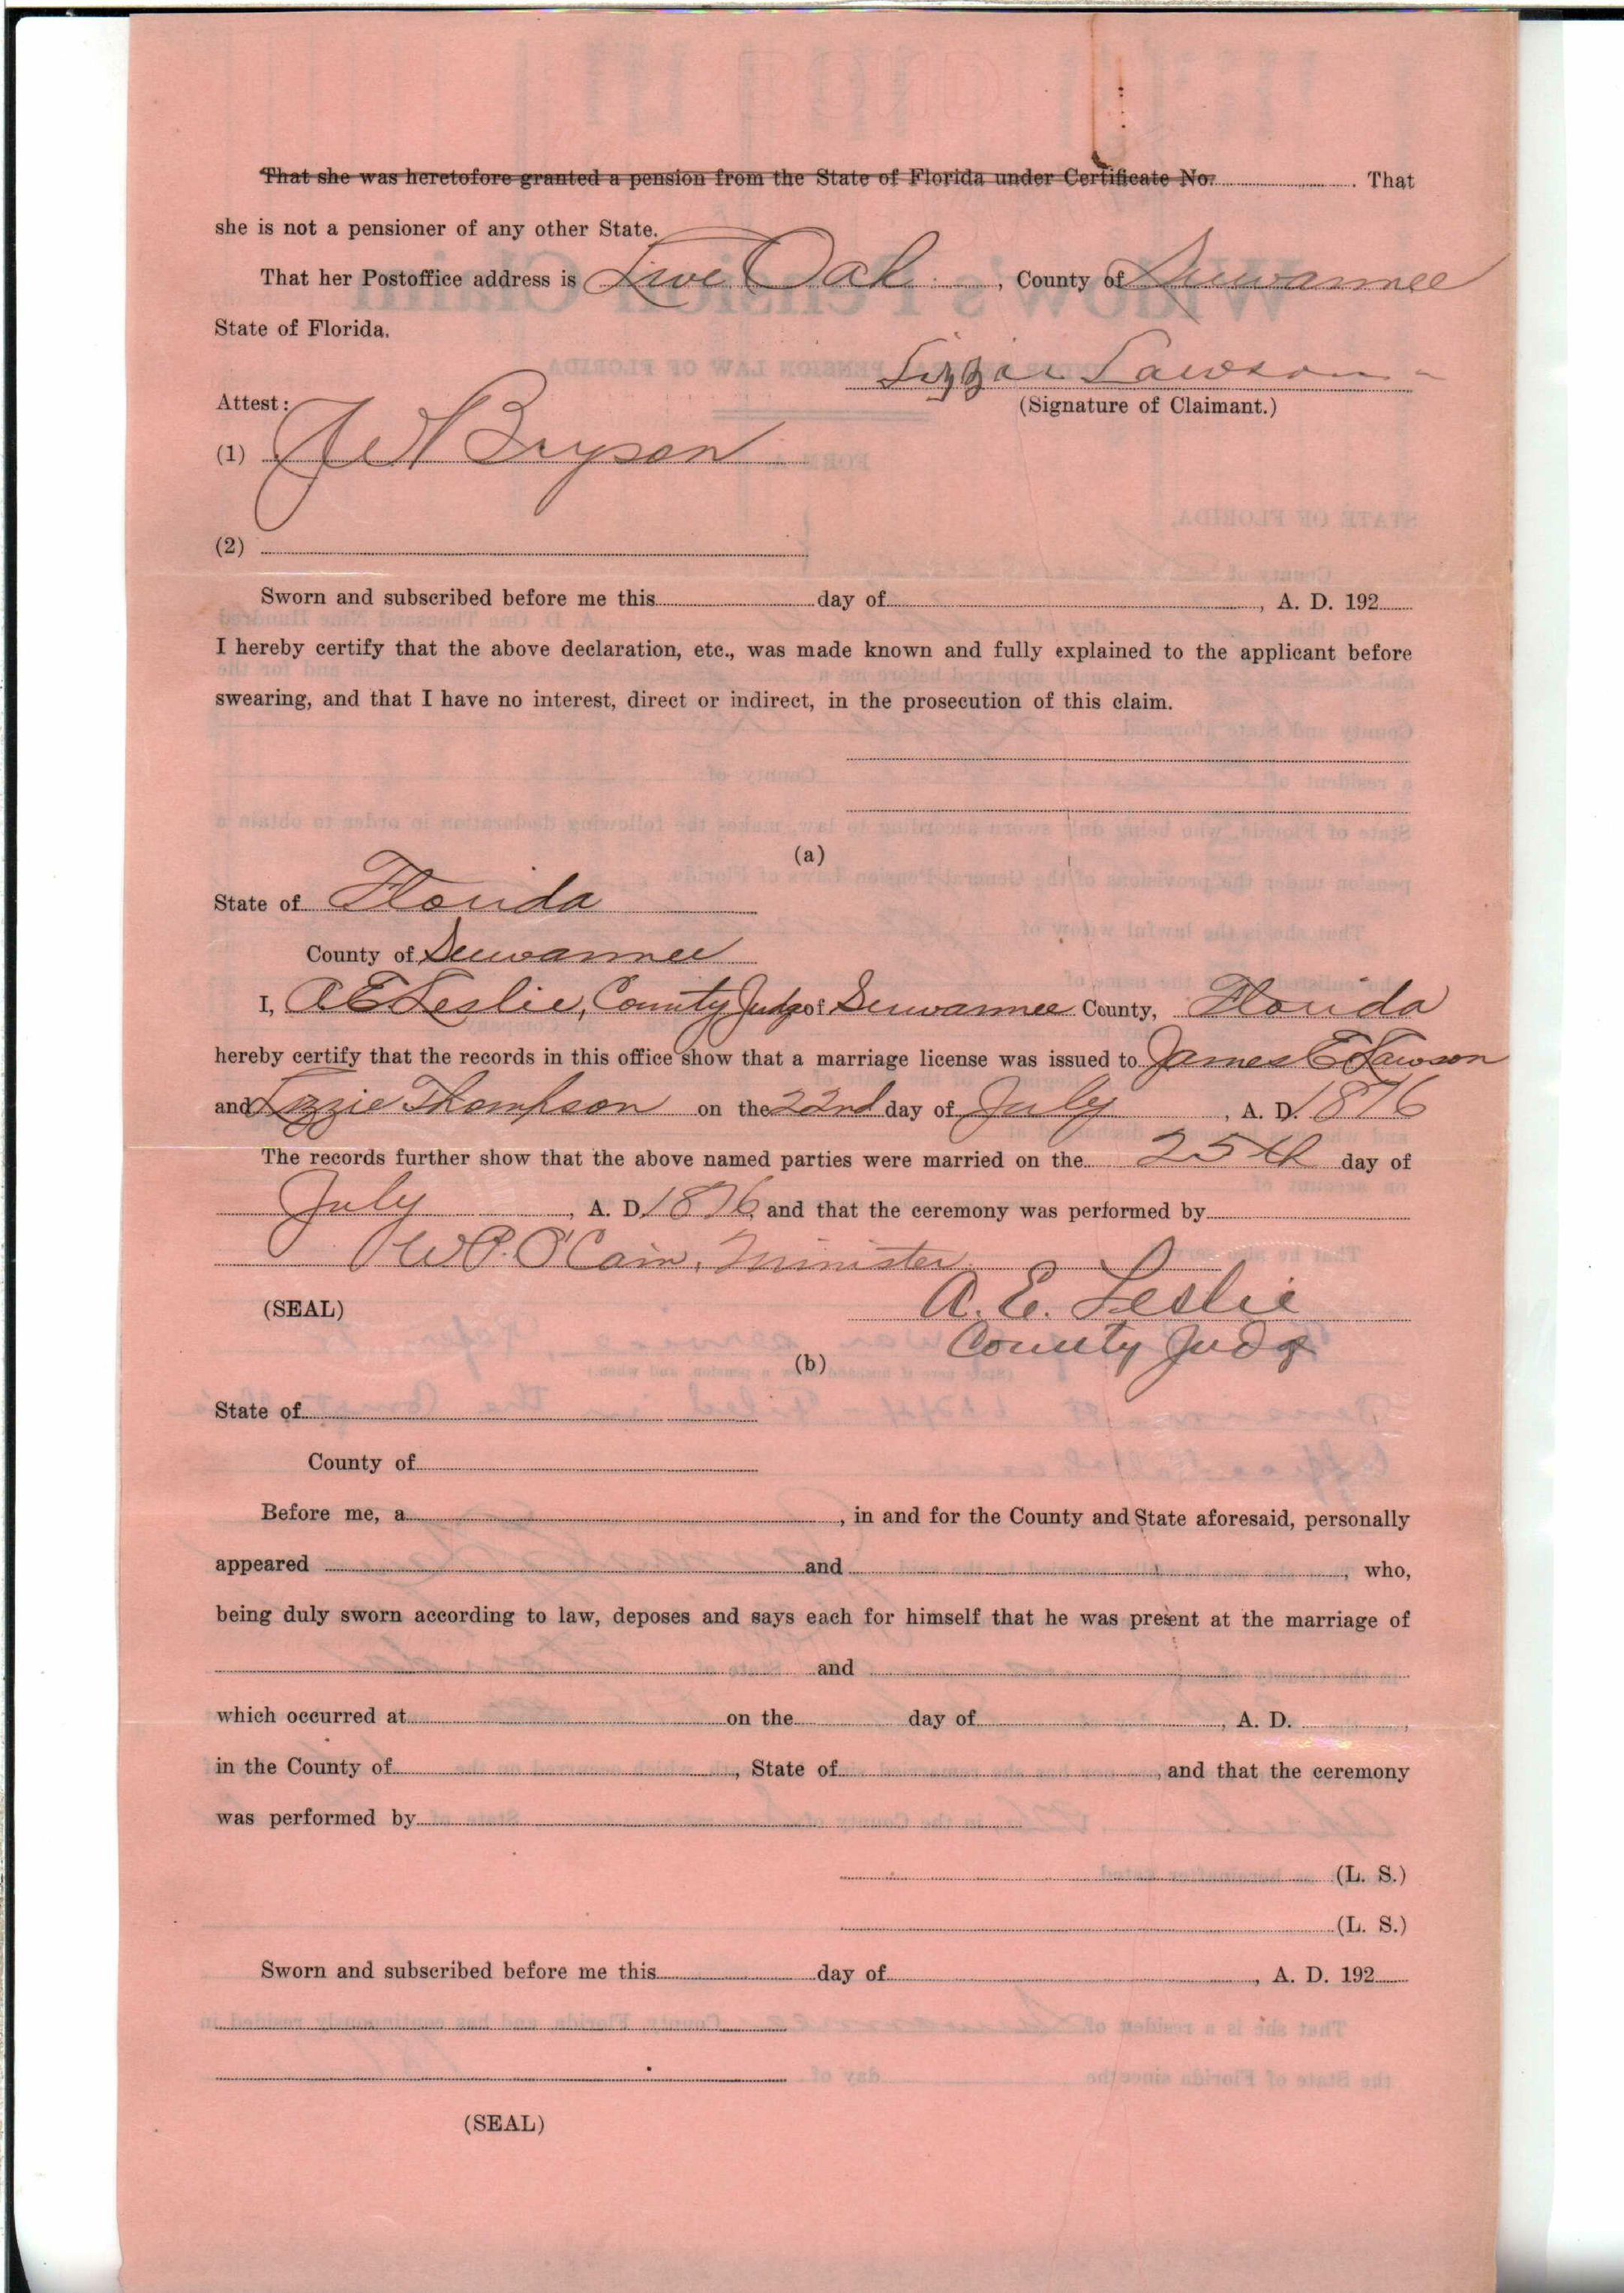 That she was heretofore granted a pension from the State of Florida under Certificate No. . That
she is not a pensioner of any other State.
That her Postoffice address is Live Oak , County of Suwannee
State of Florida.
Lizzie Lawson
Attest: (Signature of Claimant.)
(1) Bryson
(2)
Sworn and subscribed before me this day of , A. D. 192
I hereby certify that the above declaration, etc., was made known and fully explained to the applicant before
swearing, and that I have no interest, direct or indirect, in the prosecution of this claim.
(a)
State of Florida
County of Suwannee
I, A E Leslie, County Judge of Suwannee County, Florida
hereby certify that the records in this office show that a marriage license was issued to James E Lawson
and Lizzie Thompson on the 22nd day of July , A. D. 1876
The records further show that the above named parties were married on the 25th day of
July , A. D. 1876 and that the ceremony was performed by
W P. O'Cain, Minister
(SEAL) A. E. Leslie
County Judge
(b)
State of
County of
Before me, a , in and for the County and State aforesaid, personally
appeared and , who,
being duly sworn according to law, deposes and says each for himself that he was present at the marriage of
and
which occurred at on the day of , A. D. ,
in the County of , State of , and that the ceremony
was performed by
(L. S.)
(L. S.)
Sworn and subscribed before me this day of , A. D. 192
(SEAL)